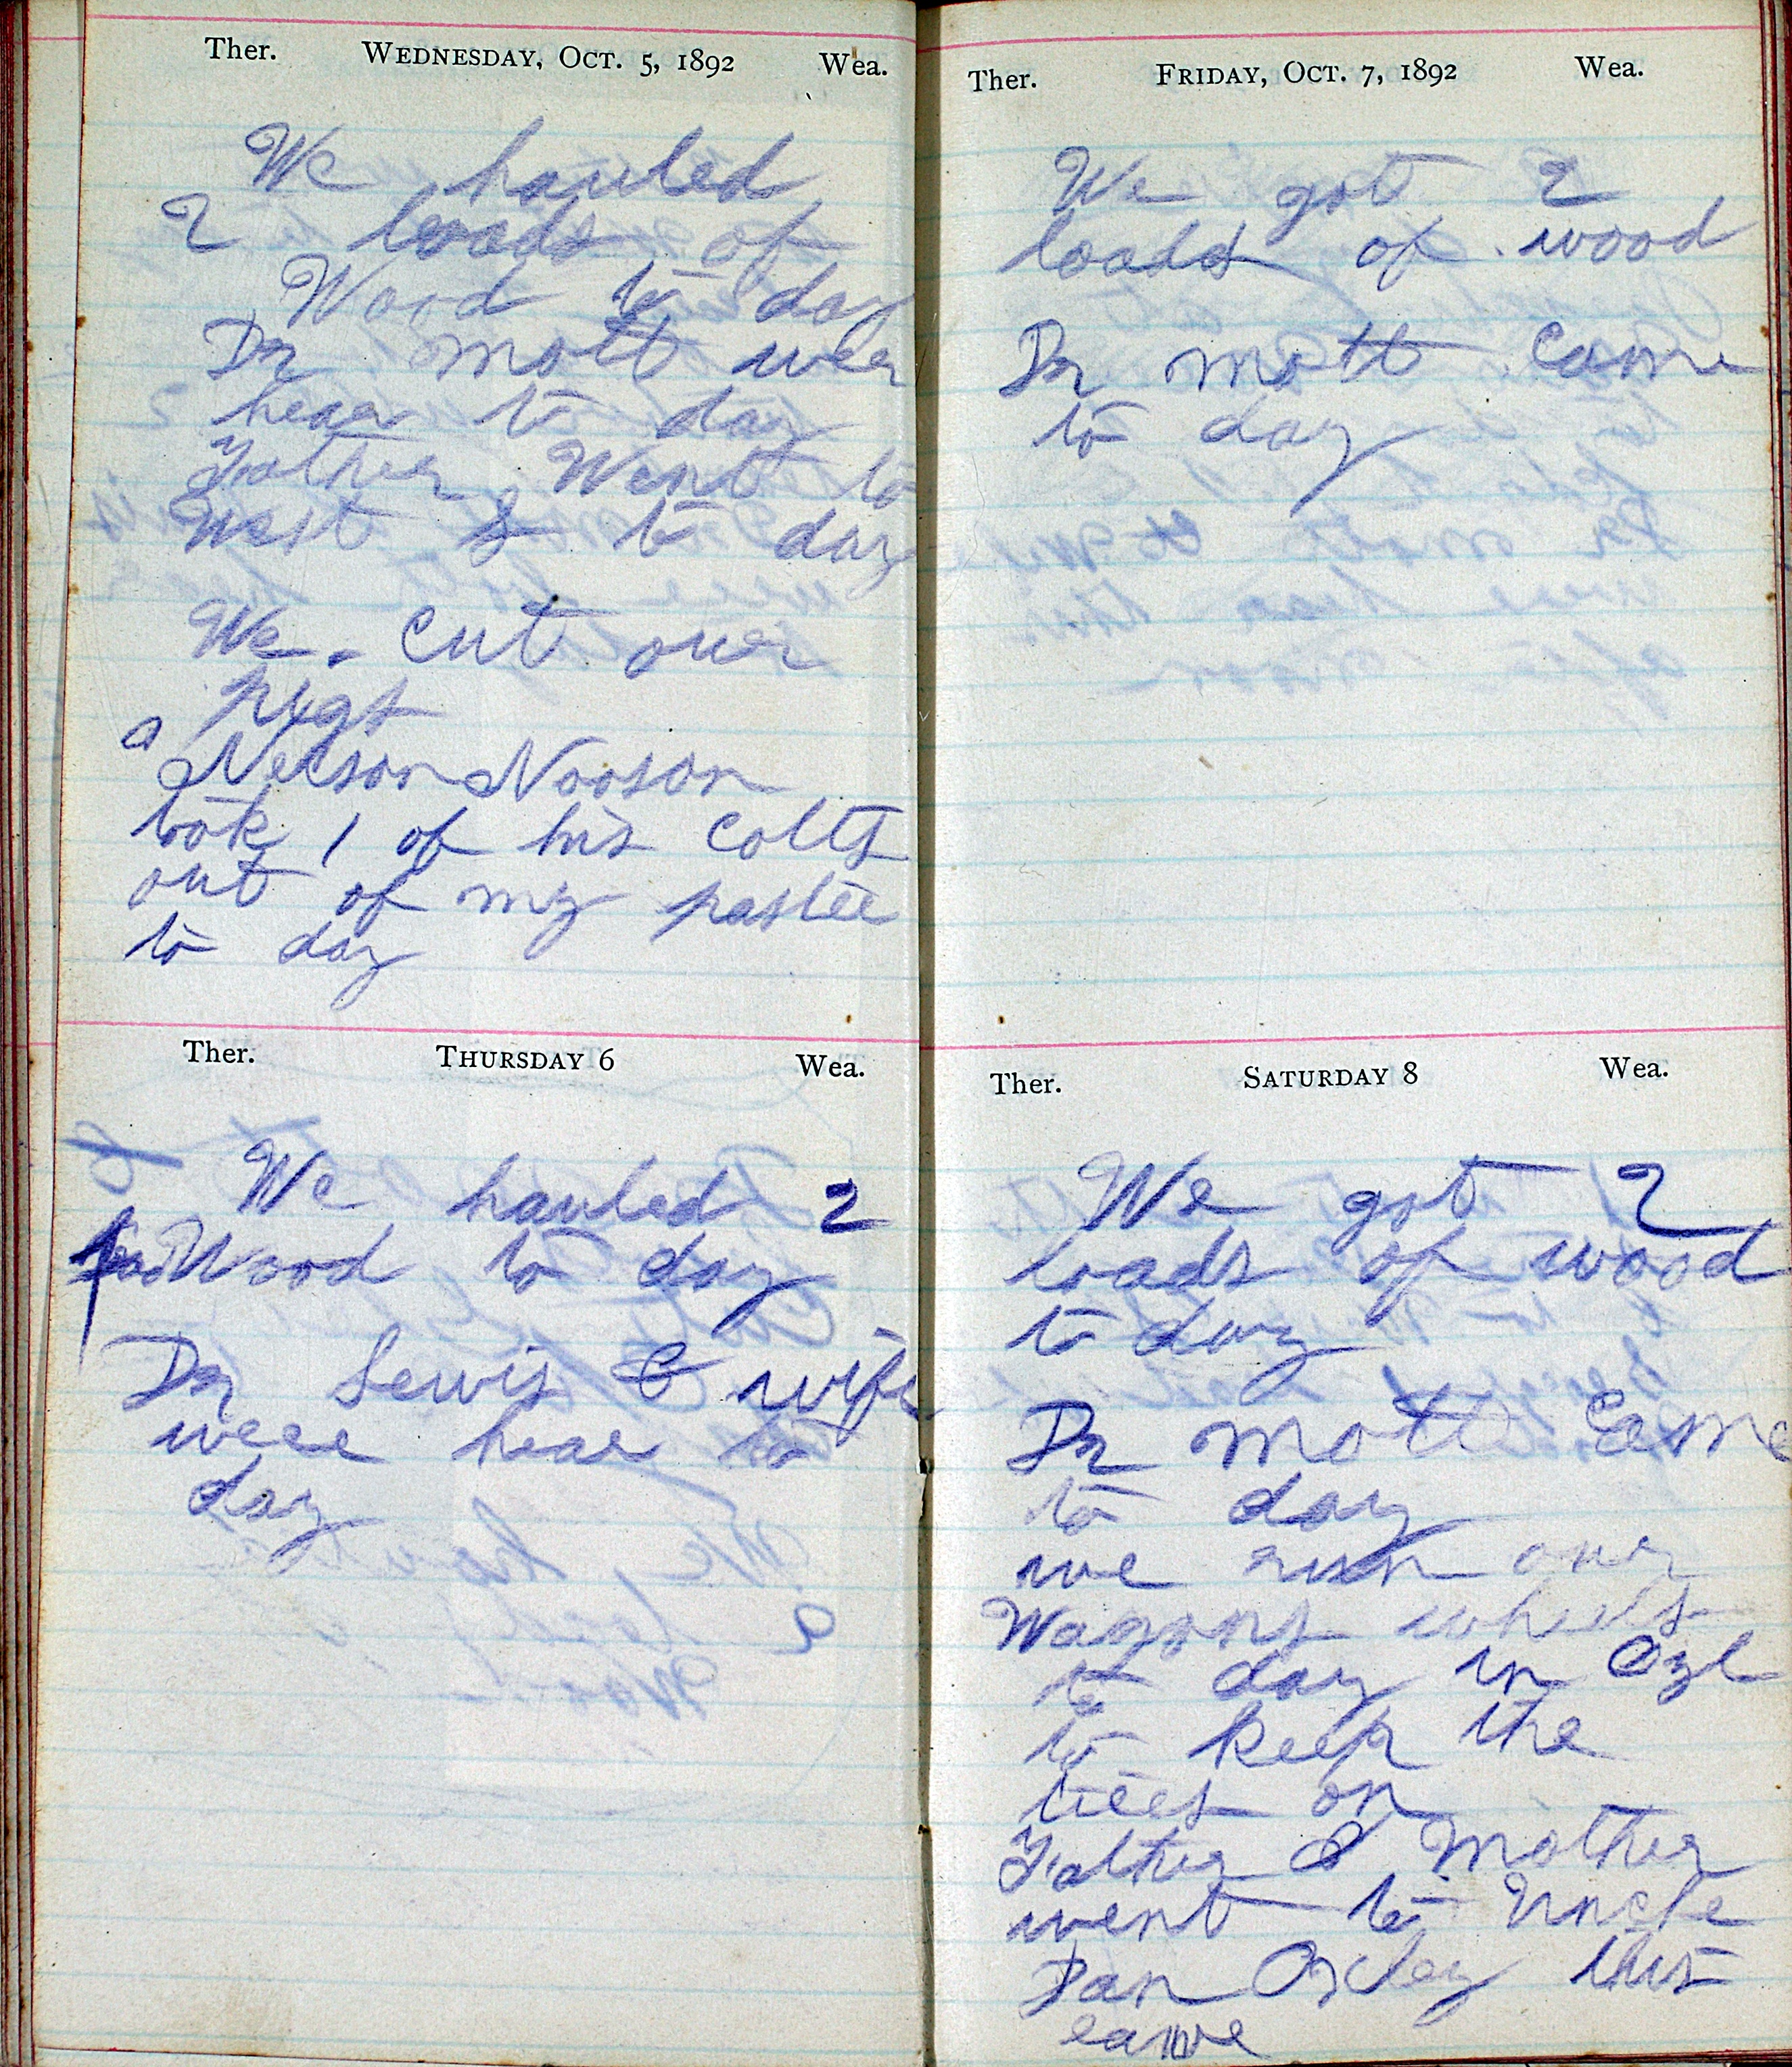 Ther. WEDNESDAY, OCT. 5, 1892 Wea.
We hauled
2 loads of
Wood to day
Dr mott wer
hear to day
Father Went to
West & to day
We. cut over
pygs
a Nelson Nooson
took 1 of his colts
out of my pastee
to day
Ther. THURSDAY 6 Wea.
We hauled 2
Wood to day
Dr Lewis & wife
were hear to
day
Ther. FRIDAY, OCT. 7, 1892 Wea.
We got 2
loads of wood
Dr mott Came
to day
Ther. SATURDAY 8 Wea.
We got 2
loads of wood
to day
Dr mott Came
to day
we run over
Wagons wheels
to day in Oyl
to keep the
tiees on
Father & Mother
went to Uncle
Dan Oxley this